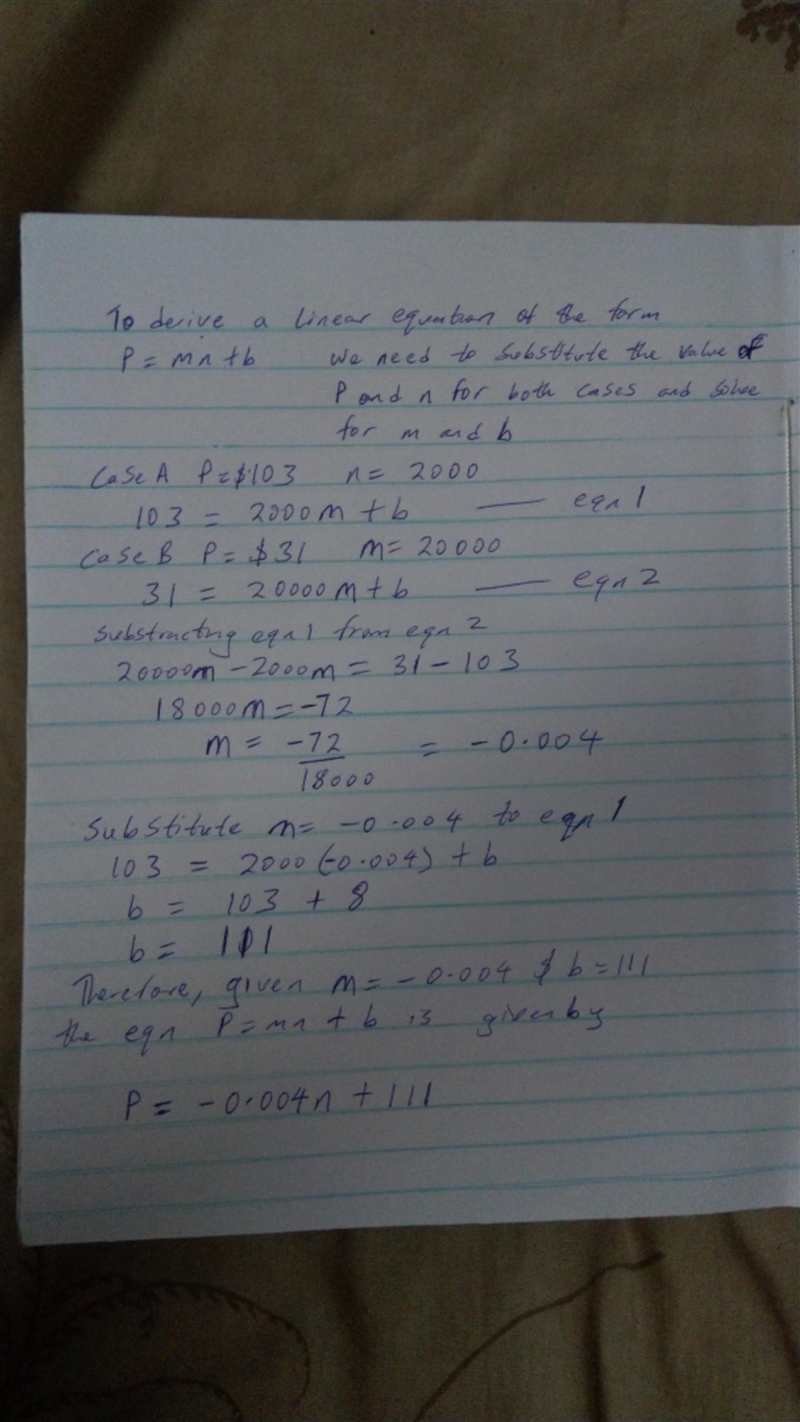 To derive a linear equation of the form
P = mn + b We need to substitute the value of
P and n for both cases and solve
for m and b
Case A P = $103 n = 2000
103 = 2000m + b —— eqn 1
Case B P = $31 m = 20000
31 = 20000m + b —— eqn 2
Substracting eqn 1 from eqn 2
20000m - 2000m = 31 - 103
18000m = -72
m = -72 = -0.004
18000
Substitute m = -0.004 to eqn 1
103 = 2000 (-0.004) + b
b = 103 + 8
b = 111
Therefore, given m = -0.004 $ b = 111
the eqn P = mn + b is given by
P = -0.004n + 111